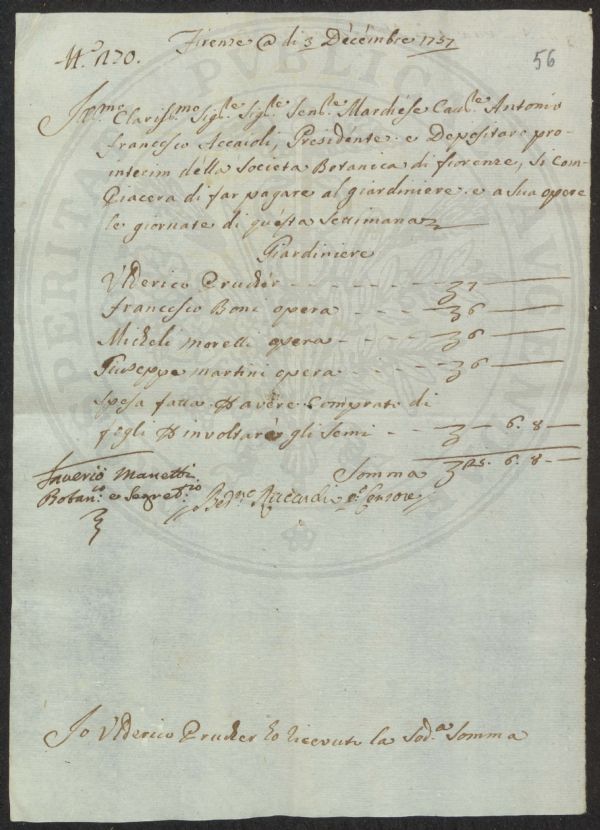 Firenze @ di 3 Décémbre 1757
N.º 120.
56
Ill.mo Clariss.mo Sig.re Sig.re Sen.re Marchése Cav.re Antonio
francesco Accaioli, Présidénte e Depositare pro-
interim délla Societa Botanica di fiorenze, si Com-
piacera di far pagare al giardiniere e a sua opere
le giornate di quésta Settimana
Giardiniere
Ulderico Prucker - - - - - - 7
francesco Boni opera - - - 6
Micheli morelli opera - - - 6
Giuseppe martini opera - - - 6
spesa fatta P avere Comprato di
fogli P involtarer gli Semi - - - 6. 8
Somma 25. 6. 8
Saverio Manetti
Botan.co e Segret.rio
Bern.e Riccardi P.o Censore
Io Ulderico Prucker ho ricevuto la Sod.a Somma